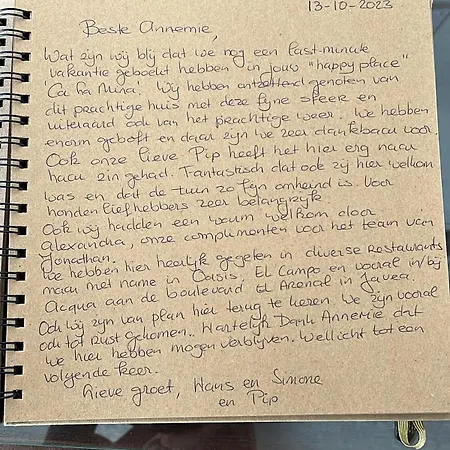 13-10-2023
Beste Annemie,
Wat zijn wij blij dat we nog een last-minute
vakantie geboekt hebben in jouw "happy place"
Ca Sa Nuna. Wij hebben ontzettend genoten van
dit prachtige huis met deze fijne sfeer en
uiteraard ook van het prachtige weer. We hebben
enorm geboft en daar zijn we zeer dankbaar voor
Ook onze lieve Pip heeft het hier erg naar
haar zin gehad. Fantastisch dat ook zij hier welkom
was en dat de tuin zo fijn omheind is. Voor
hondenliefhebbers zeer belangrijk.
Ook wij hadden een warm welkom door
Alexandra, onze complimenten voor het team van
Jonathan.
We hebben hier heerlijk gegeten in diverse restaurants
maar met name in Oasis. El Campo en vooral in/bij
Acqua aan de boulevard El Arenal in Javea.
Ook wij zijn van plan hier terug te keren. We zijn vooral
ook tot rust gekomen.. Hartelijk Dank Annemie dat
we hier hebben mogen verblijven. Wellicht tot een
volgende keer.
Lieve groet, Hans en Simone
en Pip